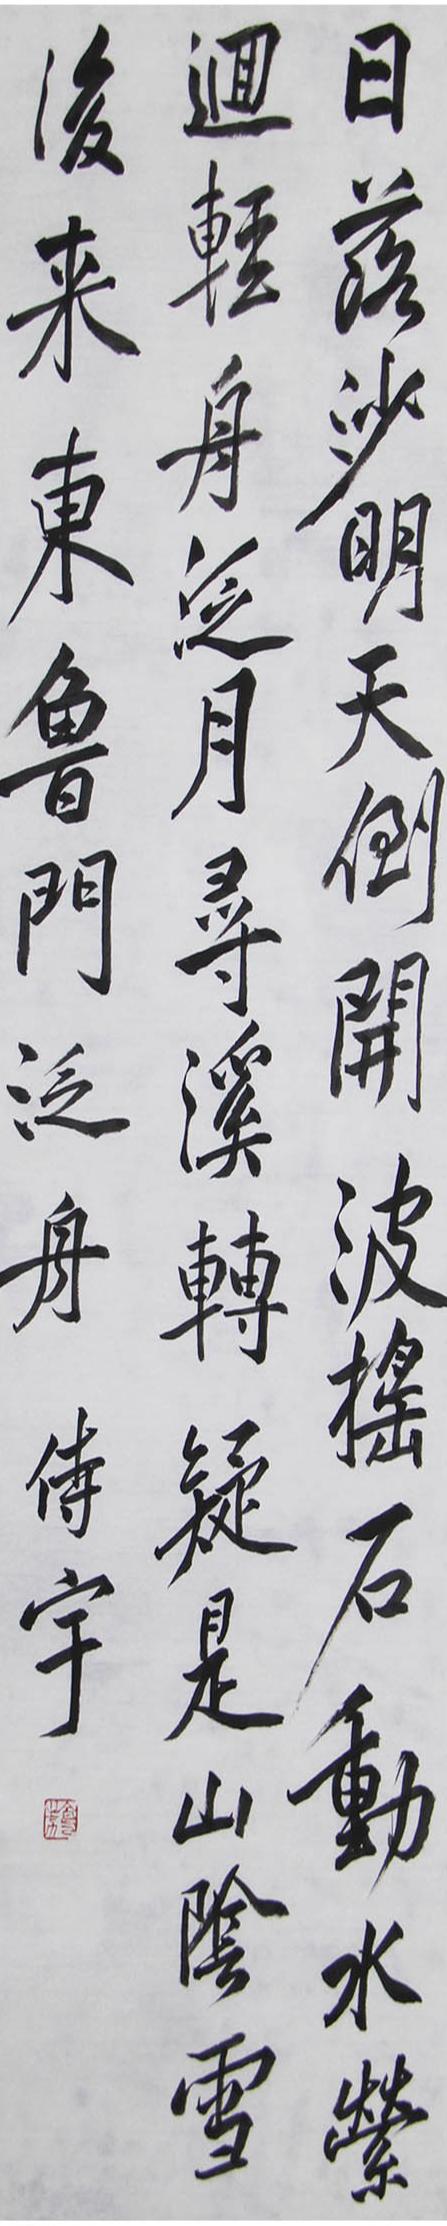 日落沙明天倒開波搖石動水縈
迴輕舟泛月尋溪轉疑是山陰雪
後来東魯門泛舟 侍宇